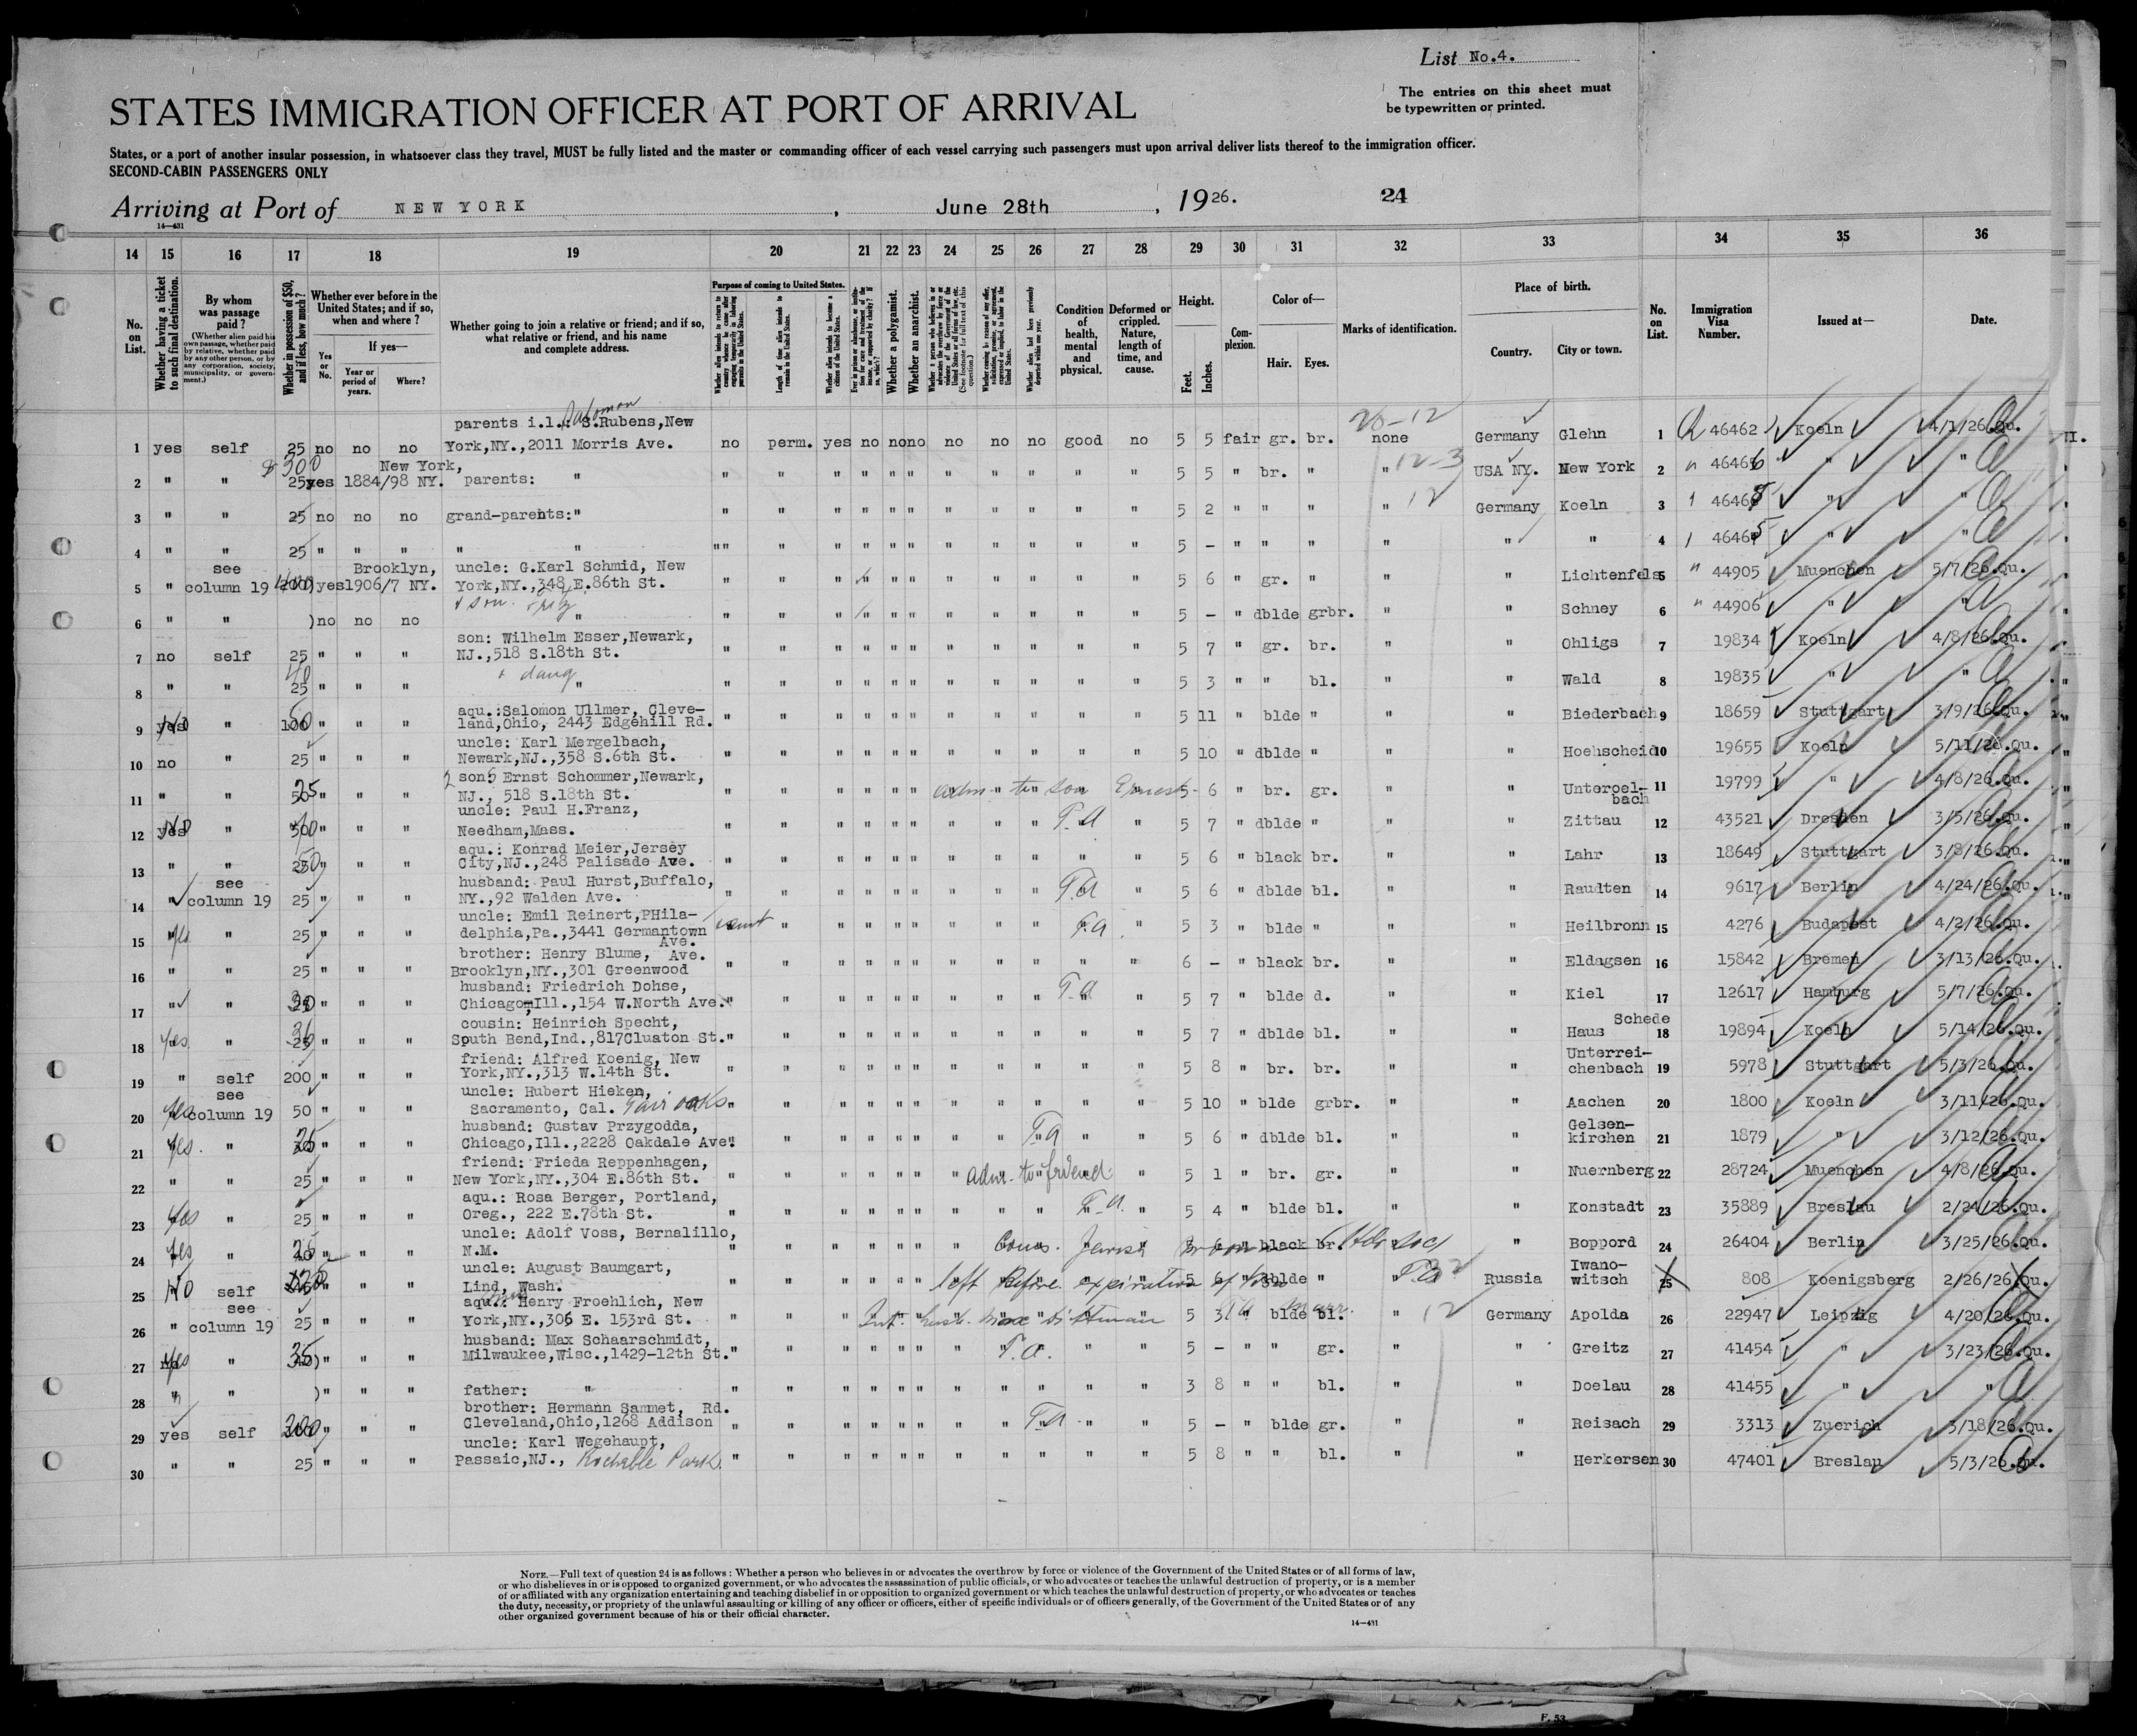 List No.4.
The entries on this sheet must
be typewritten or printed.
STATES IMMIGRATION OFFICER AT PORT OF ARRIVAL
States, or a port of another insular possession, in whatsoever class they travel, MUST be fully listed and the master or commanding officer of each vessel carrying such passengers must upon arrival deliver lists thereof to the immigration officer.
SECOND-CABIN PASSENGERS ONLY
Arriving at Port of NEW YORK, June 28th, 1926. 24
14—431
14 15 16 17 18 19 20 21 22 23 24 25 26 27 28 29 30 31 32 33 34 35 36
No. on List.
Whether having a ticket to such final destination.
By whom was passage paid?
(Whether alien paid his own passage, whether paid by relative, whether paid by any other person, or by any corporation, society, municipality, or government.)
Whether in possession of $50, and if less, how much?
Whether ever before in the United States; and if so, when and where?
Yes or No.
If yes—
Year or period of years.
Where?
Whether going to join a relative or friend; and if so, what relative or friend, and his name and complete address.
Purpose of coming to United States.
Length of time alien intends to remain in the United States.
Whether alien intends to become a citizen of the United States.
Whether a polygamist.
Whether an anarchist.
(See footnote for full text of this question.)
Condition of health, mental and physical.
Deformed or crippled. Nature, length of time, and cause.
Height.
Feet.
Inches.
Complexion.
Color of—
Hair.
Eyes.
Marks of identification.
Place of birth.
Country.
City or town.
No. on List.
Immigration Visa Number.
Issued at—
Date.
parents i.l.: Salomon S.Rubens,New 20-12
1 yes self 25 no no no York,NY.,2011 Morris Ave. no perm. yes no no no no no no good no 5 5 fair gr. br. none Germany Glehn 1 46462 Koeln 4/1/26.Qu.
New York,
2 " " 25 yes 1884/98 NY. parents: " " " " " " " " " " " " 5 5 " br. " " 12-3 USA NY. New York 2 46466 " "
3 " " 25 no no no grand-parents:" " " " " " " " " " " " 5 2 " " " " 12 Germany Koeln 3 " "
4 " " 25 " " " " " " " " " " " " " " " " 5 - " " " " " " 4 " "
see Brooklyn, uncle: G.Karl Schmid, New
5 " column 19 yes 1906/7 NY. York,NY.,348,E.86th St. " " " " " " " " " " " 5 6 " gr. " " " Lichtenfels 5 44905 Muenchen 5/7/26.Qu.
6 " " ) no no no " " " " " " " " " " " " 5 - " dblde grbr. " " Schney 6 44906 " "
son: Wilhelm Esser,Newark,
7 no self 25 " " " NJ.,518 S.18th St. " " " " " " " " " " " 5 7 " gr. br. " " Ohligs 7 19834 Koeln 4/8/26.Qu.
+ daug
8 " " 25 " " " " " " " " " " " " " " " 5 3 " " bl. " " Wald 8 19835 " "
aqu.:Salomon Ullmer, Cleve-
9 No " 100 " " " land,Ohio, 2443 Edgehill Rd. " " " " " " " " " " " 5 11 " blde " " " Biederbach 9 18659 Stuttgart 3/9/26.Qu.
uncle: Karl Mergelbach,
10 no " 25 " " " Newark,NJ.,358 S.6th St. " " " " " " " " " " " 5 10 " dblde " " " Hoehscheid 10 19655 Koeln 5/11/26.Qu.
2 sons Ernst Schommer,Newark,
11 " " " " " NJ., 518 S.18th St. " " " " " " adm - to son Ernest - 5 6 " br. gr. " " Unteroel-bach 11 19799 " 4/8/26.Qu.
uncle: Paul H.Franz,
12 No " " " " Needham,Mass. " " " " " " " " " T.A " 5 7 " dblde " " " Zittau 12 43521 Dresden 3/5/26.Qu.
aqu.: Konrad Meier,Jersey
13 " " " " " City,NJ.,248 Palisade Ave. " " " " " " " " " " " 5 6 " black br. " " Lahr 13 18649 Stuttgart 3/8/26.Qu.
see husband: Paul Hurst,Buffalo,
14 " column 19 25 " " " NY.,92 Walden Ave. " " " " " " " " " T.A " 5 6 " dblde bl. " " Raudten 14 9617 Berlin 4/24/26.Qu.
uncle: Emil Reinert,PHila-
15 yes " 25 " " " delphia,Pa.,3441 Germantown Ave. " " " " " " " " T.A. " 5 3 " blde " " " Heilbronn 15 4276 Budapest 4/2/26.Qu.
brother: Henry Blume, Ave.
16 " " 25 " " " Brooklyn,NY.,301 Greenwood " " " " " " " " " " " 6 - " black br. " " Eldagsen 16 15842 Bremen 3/13/26.Qu.
husband: Friedrich Dohse,
17 " " " " " Chicago,Ill.,154 W.North Ave." " " " " " " " " T.A " 5 7 " blde d. " " Kiel 17 12617 Hamburg 5/7/26.Qu.
cousin: Heinrich Specht, Schede
18 yes " " " " South Bend,Ind.,817Cluaton St." " " " " " " " " " " 5 7 " dblde bl. " " Haus 18 19894 Koeln 5/14/26.Qu.
friend: Alfred Koenig, New Unterrei-
19 " self 200 " " " York,NY.,313 W.14th St. " " " " " " " " " " " 5 8 " br. br. " " chenbach 19 5978 Stuttgart 5/3/26.Qu.
see uncle: Hubert Hieken,
20 Yes column 19 50 " " " Sacramento, Cal. Fair Oaks " " " " " " " " " " " 5 10 " blde grbr. " " Aachen 20 1800 Koeln 3/11/26.Qu.
husband: Gustav Przygodda, Gelsen-
21 Yes. " " " " Chicago,Ill.,2228 Oakdale Ave." " " " " " " " T.A " " 5 6 " dblde bl. " " kirchen 21 1879 " 3/12/26.Qu.
friend: Frieda Reppenhagen,
22 " " 25 " " " New York,NY.,304 E.86th St. " " " " " " " adm. to friend 5 1 " br. gr. " " Nuernberg 22 28724 Muenchen 4/8/26.Qu.
aqu.: Rosa Berger, Portland,
23 Yes " 25 " " " Oreg., 222 E.78th St. " " " " " " " " " T.A. " 5 4 " blde bl. " " Konstadt 23 35889 Breslau 2/24/26.Qu.
uncle: Adolf Voss, Bernalillo,
24 Yes " " " " N.M. " " " " " " " Jewish black br. " Boppord 24 26404 Berlin 3/25/26.Qu.
uncle: August Baumgart, Iwano-
25 No self " " " Lind, Wash. " " " " " " left before expiration of 5 6 dblde " " Russia witsch 25 808 Koenigsberg 2/26/26.Qu.
see aqu.: Henry Froehlich, New
26 " column 19 25 " " " York,NY.,306 E. 153rd St. " " " 5 3 " blde bl. " 12 Germany Apolda 26 22947 Leipzig 4/20/26.Qu.
husband: Max Schaarschmidt,
27 Yes " 35 " " " Milwaukee,Wisc.,1429-12th St." " " " " " " T.A. " " 5 - " " gr. " " Greitz 27 41454 " 3/23/26.Qu.
28 " " ) " " " father: " " " " " " " " " " " " 3 8 " " bl. " " Doelau 28 41455 " "
brother: Hermann Sammet, Rd.
29 yes self 200 " " " Cleveland,Ohio,1268 Addison " " " " " " " " T.A " " 5 - " blde gr. " " Reisach 29 3313 Zuerich 3/18/26.Qu.
uncle: Karl Wegehaupt,
30 " " 25 " " " Passaic,NJ., Rochelle Park " " " " " " " " " " " 5 8 " " bl. " " Herkersen 30 47401 Breslau 5/3/26.Qu.
NOTE.—Full text of question 24 is as follows: Whether a person who believes in or advocates the overthrow by force or violence of the Government of the United States or of all forms of law,
or who disbelieves in or is opposed to organized government, or who advocates the assassination of public officials, or who advocates or teaches the unlawful destruction of property, or is a member
of or affiliated with any organization entertaining and teaching disbelief in or opposition to organized government or which teaches the unlawful destruction of property, or who advocates or teaches
the duty, necessity, or propriety of the unlawful assaulting or killing of any officer or officers, either of specific individuals or of officers generally, of the Government of the United States or of any
other organized government because of his or their official character.
14—431
F. 53